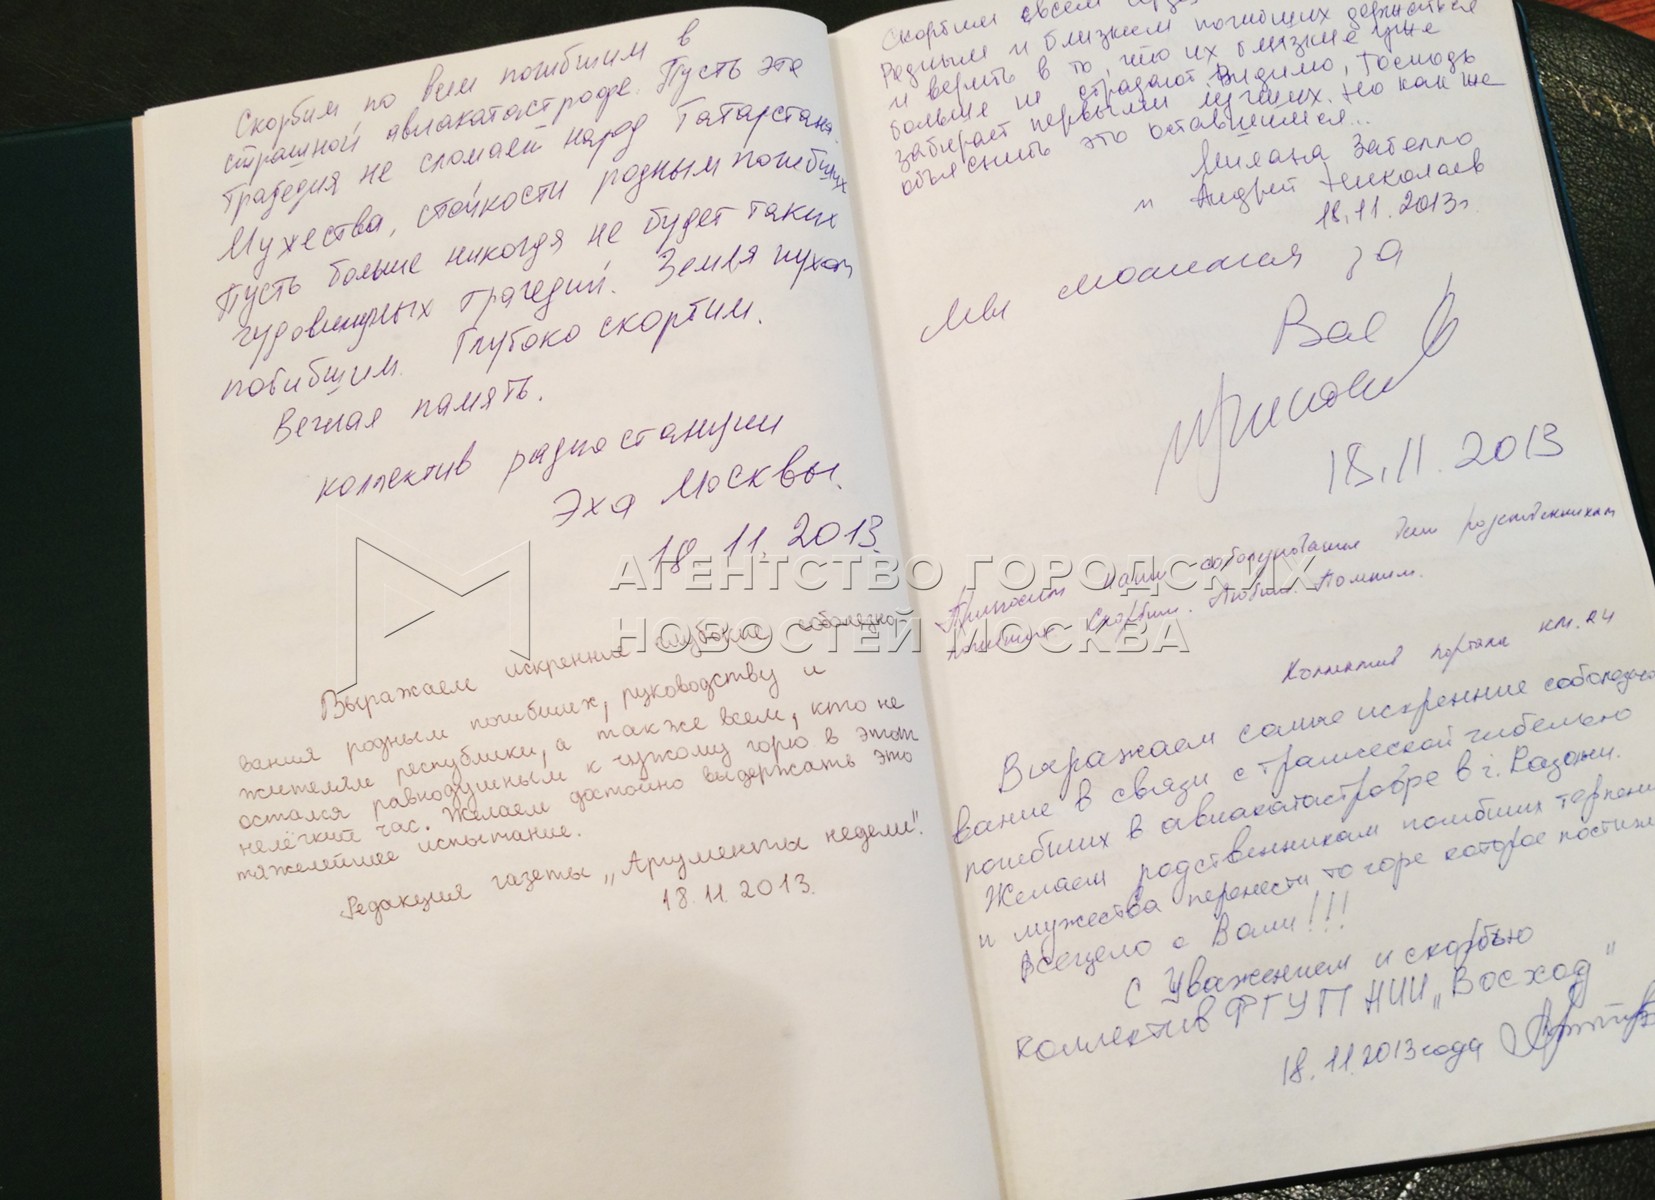 Скорбим по всем погибшим в
страшной авиакатастрофе. Пусть эта
трагедия не сломает народ Татарстана.
Мужества, стойкости родным погибших
Пусть больше никогда не будет таких
чудовищных трагедий. Земля пухом
погибшим. Глубоко скорбим.
Вечная память.
коллектив радиостанции
Эха Москвы.
18.11.2013.
Выражаем искренние глубокие соболезно-
вания родным погибших, руководству и
жителям республики, а также всем, кто не
остался равнодушным к чужому горю в этот
нелёгкий час. Желаем достойно выдержать это
тяжелейшее испытание.
Редакция газеты „Аргументы недели".
18.11.2013.
Скорбим всем
Родным и близким погибших держаться
и верить в то, что их близкие уже
больше не страдают. Видимо, Господь
забирает первыми лучших. Но как же
объяснить это оставшимся...
Милана Зателло
и Андрей Николаев
18.11.2013г.
Мы молимся за
Вас
18.11.2013
Приносим наши соболезнования всем родственникам
погибших. Скорбим. Любим. Помним.
Коллектив портала km.ru
Выражаем самые искренние соболезно
вание в связи с трагической гибелью
погибших в авиакатастрофе в г. Казани.
Желаем родственникам погибших терпени
и мужества перенести то горе которое постигл
Всецело с Вами!!!
С Уважением и скорбью
коллектив ФГУП НИИ „Восход"
18.11.2013 года
АГЕНТСТВО ГОРОДСКИХ
НОВОСТЕЙ МОСКВА